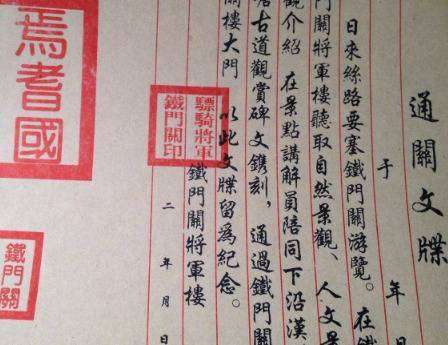 通關文牒
于 年
日來絲路要塞鐵門關游覽。在鐵
門關將軍樓聽取自然景觀、人文景
觀介紹 在景點講解員陪同下沿漢
唐古道觀賞碑文鐫刻，通過鐵門關
關樓大門 以此文牒留為紀念。
驃騎將軍
鐵門關印
鐵門關將軍樓
二 年 月 日
焉耆國
鐵門關